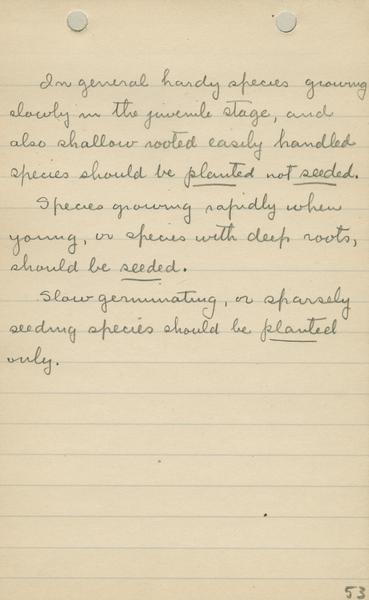 In general hardy species growing
slowly in the juvenile stage, and
also shallow rooted easily handled
species should be planted not seeded.
Species growing rapidly when
young, or species with deep roots,
should be seeded.
Slow germinating, or sparsely
seeding species should be planted
only.
53